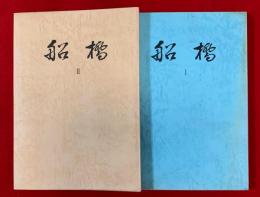 船橋
II
船橋
I